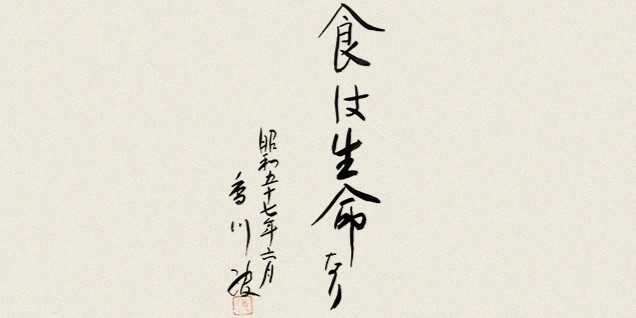 食は生命なり
昭和五十七年六月
香川綾